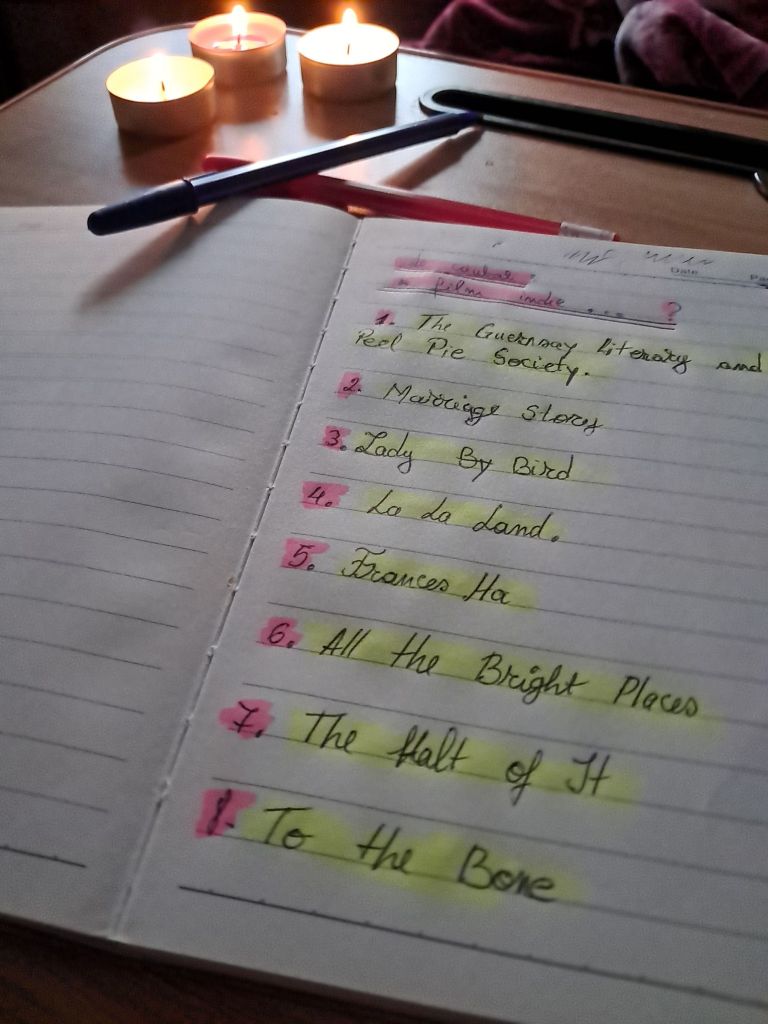 Date
film indie ... ?
1. The Guernsay Literary and
Peel Pie Society.
2. Marriage Story
3. Lady By Bird
4. La La Land.
5. Frances Ha
6. All the Bright Places
7. The Halt of It
8. To the Bone